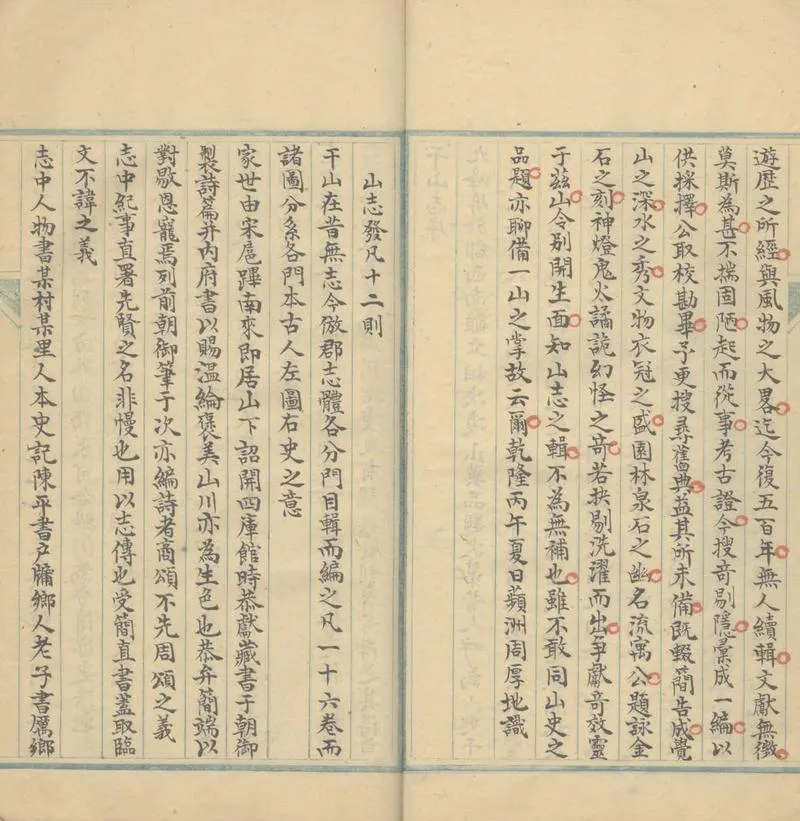 遊歷之所經與風物之大畧迄今復五百年無人續輯文獻無徵
莫斯為甚不揣固陋起而從事考古證今搜奇剔隱彙成一編以
供採擇公取校勘畢予更搜尋舊典益其所未備既輟簡告成覺
山之深水之秀文物衣冠之盛園林泉石之幽名流寓公題詠金
石之刻神燈鬼火譎詭幻怪之奇若抉剔洗濯而出爭獻奇效靈
于茲山令別開生面知山志之輯不為無補也雖不敢同山史之
品題亦聊備一山之掌故云爾乾隆丙午夏日蘋洲周厚地識
山志發凡十二則
干山在昔無志今倣郡志體各分門目輯而編之凡一十六卷而
諸圖分系各門本古人左圖右史之意
家世由宋扈蹕南來即居山下詔開四庫館時恭獻藏書于朝御
製詩篇并內府書以賜溫綸褒美山川亦為生色也恭弁簡端以
對敭恩寵焉列前朝御筆于次亦編詩者商頌不先周頌之義
志中紀事直署先賢之名非慢也用以志傳也受簡直書蓋取臨
文不諱之義
志中人物書某村某里人本史記陳平書戶牖鄉人老子書厲鄉